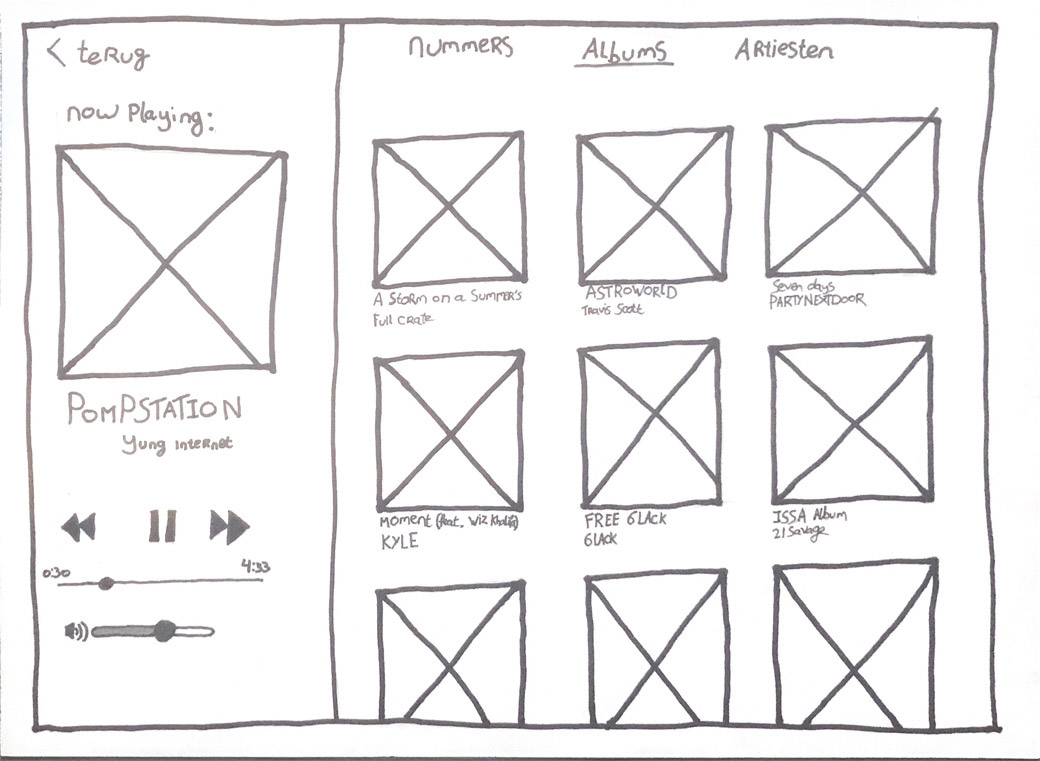 < teRug
now Playing:
PomPSTATION
Yung inteRnet
0:30
4:33
nummeRS
ALbumS
ARtiesten
A StoRm on a SummeR's
Full CRate
ASTROWORLD
TRavis Scott
Seven days
PARTYNEXTDOOR
moment (feat. Wiz Khalifa)
KYLE
FREE 6LAck
6LAck
ISSA Album
21 Savage